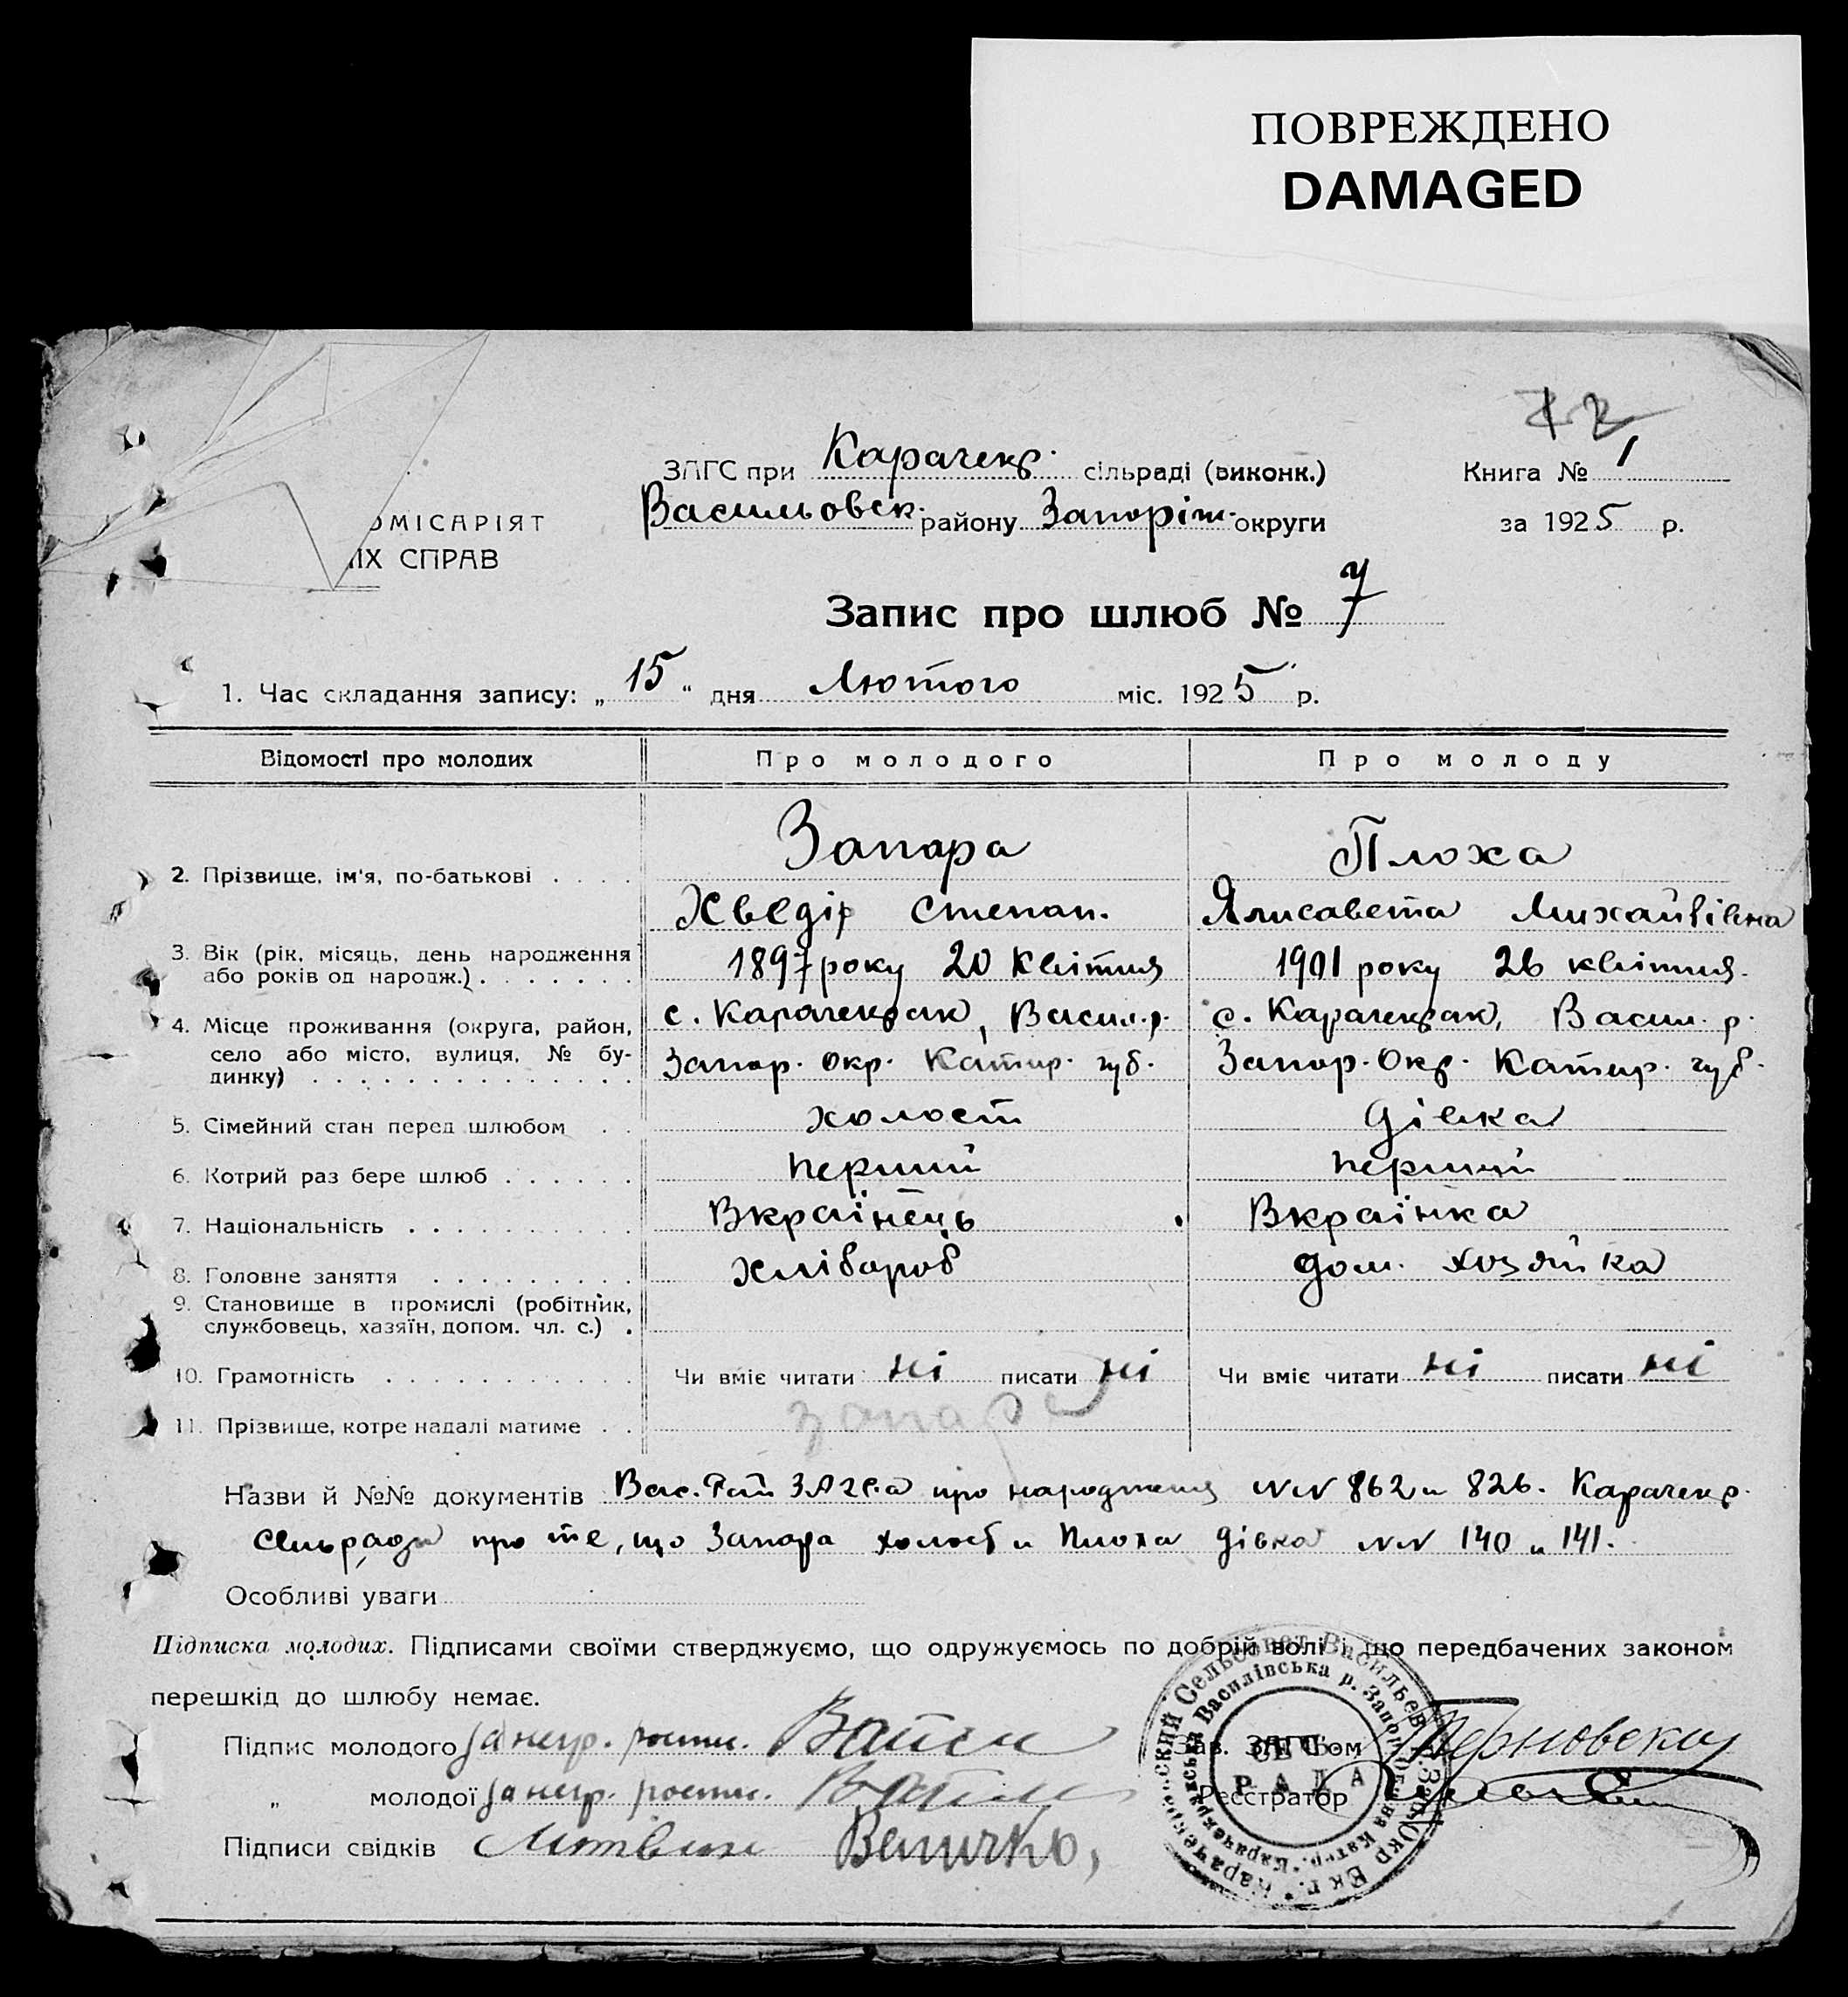 ПОВРЕЖДЕНО
DAMAGED
72
ЗАГС при Карачекр. сільраді (виконк.) Книга № 1
ОМІСАРІЯТ Васильовск. району Запоріж. округи за 1925 р.
ІХ СПРАВ
Запис про шлюб № 7
1. Час складання запису: „15" дня Лютого міс. 1925 р.
Відомості про молодих Про молодого Про молоду
Запара Плоха
2. Прізвище, ім'я, по-батькові
Хведір Степан. Ялисавета Михайвівна
3. Вік (рік, місяць, день народження 1897 року 20 Квітня 1901 року 26 квітня.
або років од народж.)
4. Місце проживання (округа, район, с. Карачекрак, Васил. р. с. Карачекрак, Васил. р.
село або місто, вулиця, № бу- Запор. Окр. Катир. губ. Запор. Окр. Катир. губ.
динку)
5. Сімейний стан перед шлюбом холост дівка
6. Котрий раз бере шлюб перший перший
7. Національність Вкраінець Вкраінка
8. Головне заняття хлібароб дом. хозяйка
9. Становище в промислі (робітник,
службовець, хазяїн, допом. чл. с.)
10. Грамотність Чи вміє читати ні писати ні Чи вміє читати ні писати ні
11. Прізвище, котре надалі матиме запара
Назви й №№ документів Вас. Рай ЗАГС.а про народження NN 862 и 826. Карачекр.
сельради про те, що Запара холост и Плоха дівка NN 140 и 141.
Особливі уваги
Підписка молодих. Підписами своїми стверджуємо, що одружуємось по добрій волі і що передбачених законом
перешкід до шлюбу немає.
Підпис молодого за негр. роспи. Зав. ЗАГС'ом
„ молодої за негр. роспи. Реєстратор
Підписи свідків Литвин Величко,
Сельсовет Васильев
Василівська р. Запор.
РАДА